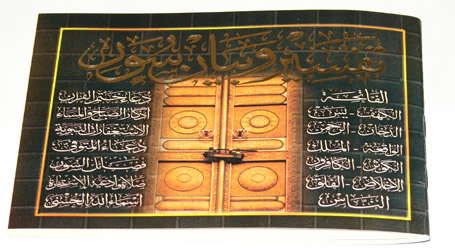 تفسير وبيان سور
الفاتحة
الكهف - يس
الدخان - الرحمن
الواقعة - الملك
الكوثر - الكافرون
الإخلاص - الفلق
الناس
دعاء ختم القرآن
أذكار الصباح والمساء
الاستغفارات النبوية
دعاء المتوفى
فضائل السور
صلاة وأدعية الاستخارة
أسماء الله الحسنى